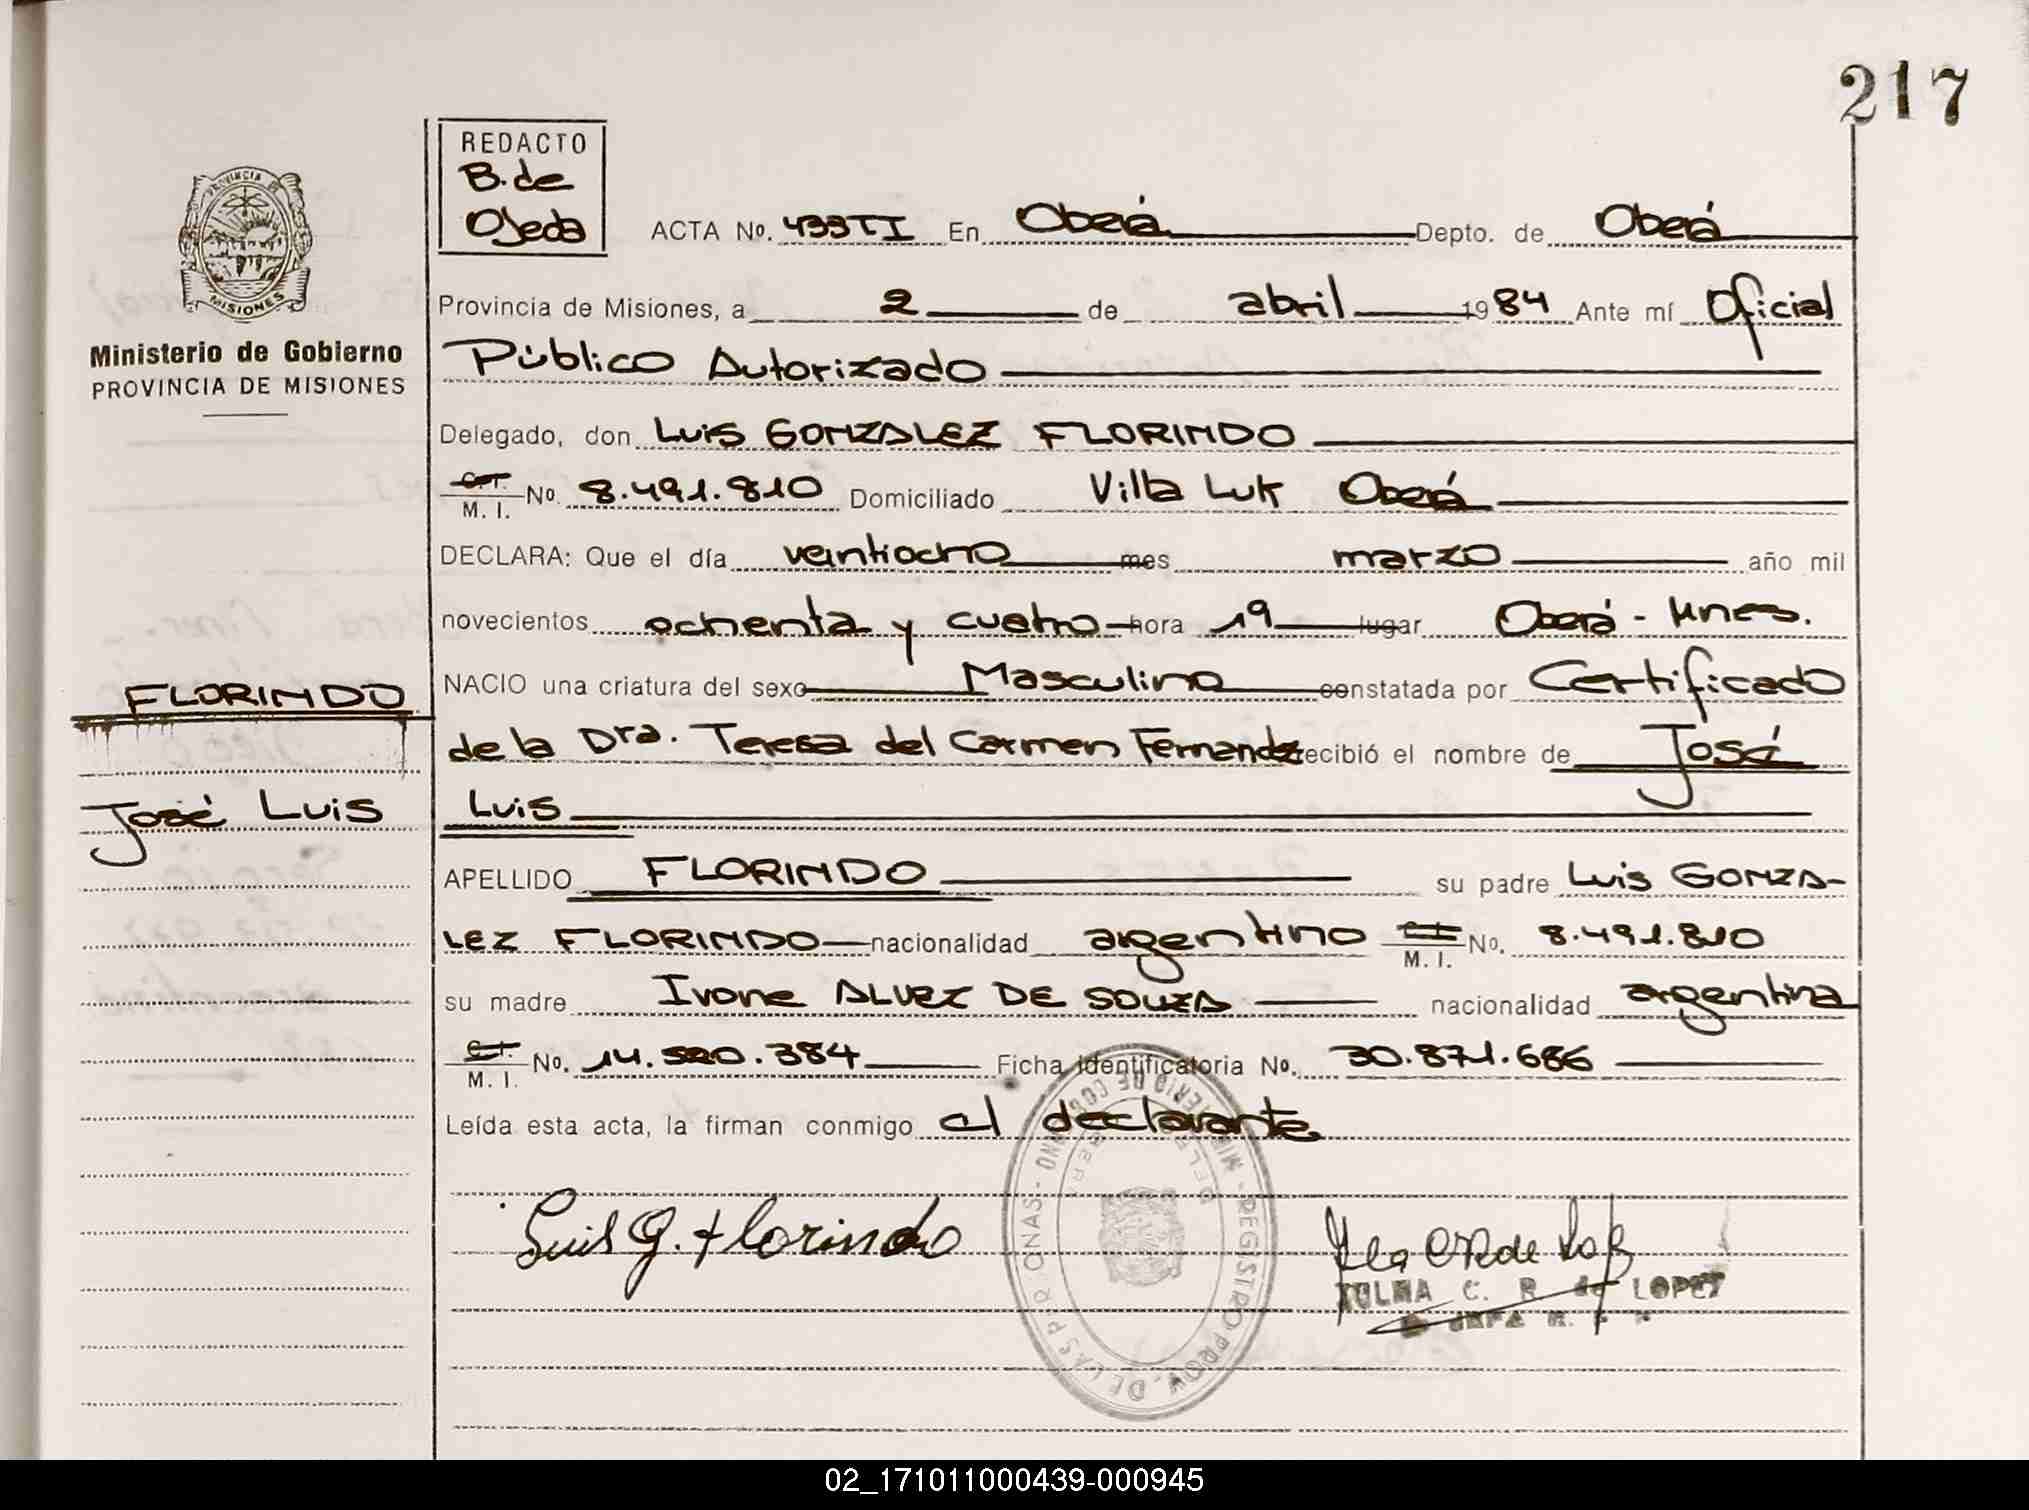 217
REDACTO
B. de
Ojeda
PROVINCIA DE
MISIONES
Ministerio de Gobierno
PROVINCIA DE MISIONES
ACTA No. 433TI En Oberá Depto. de Oberá
Provincia de Misiones, a 2 de abril 1984 Ante mí Oficial
Público Autorizado
Delegado, don Luis GONZALEZ FLORINDO
C.I. M. I. No. 8.491.810 Domiciliado Villa Luk Oberá
DECLARA: Que el día veintiocho mes marzo año mil
novecientos ochenta y cuatro hora 19 lugar Oberá - Mnes.
FLORINDO
NACIO una criatura del sexo Masculino constatada por Certificado
de la Dra. Teresa del Carmen Fernandez recibió el nombre de José
José Luis
Luis
APELLIDO FLORINDO su padre Luis GONZA-
LEZ FLORINDO nacionalidad argentino C.I. M. I. No. 8.491.810
su madre Ivone ALVEZ DE SOUZA nacionalidad argentina
C.I. M. I. No. 14.520.384 Ficha identificatoria No. 30.871.686
Leída esta acta, la firman conmigo el declarante
Luis G. Florindo
REGISTRO PROV. DE LAS PERSONAS - MINISTERIO DE GOBIERNO
C. R. de LOPEZ
02_171011000439-000945